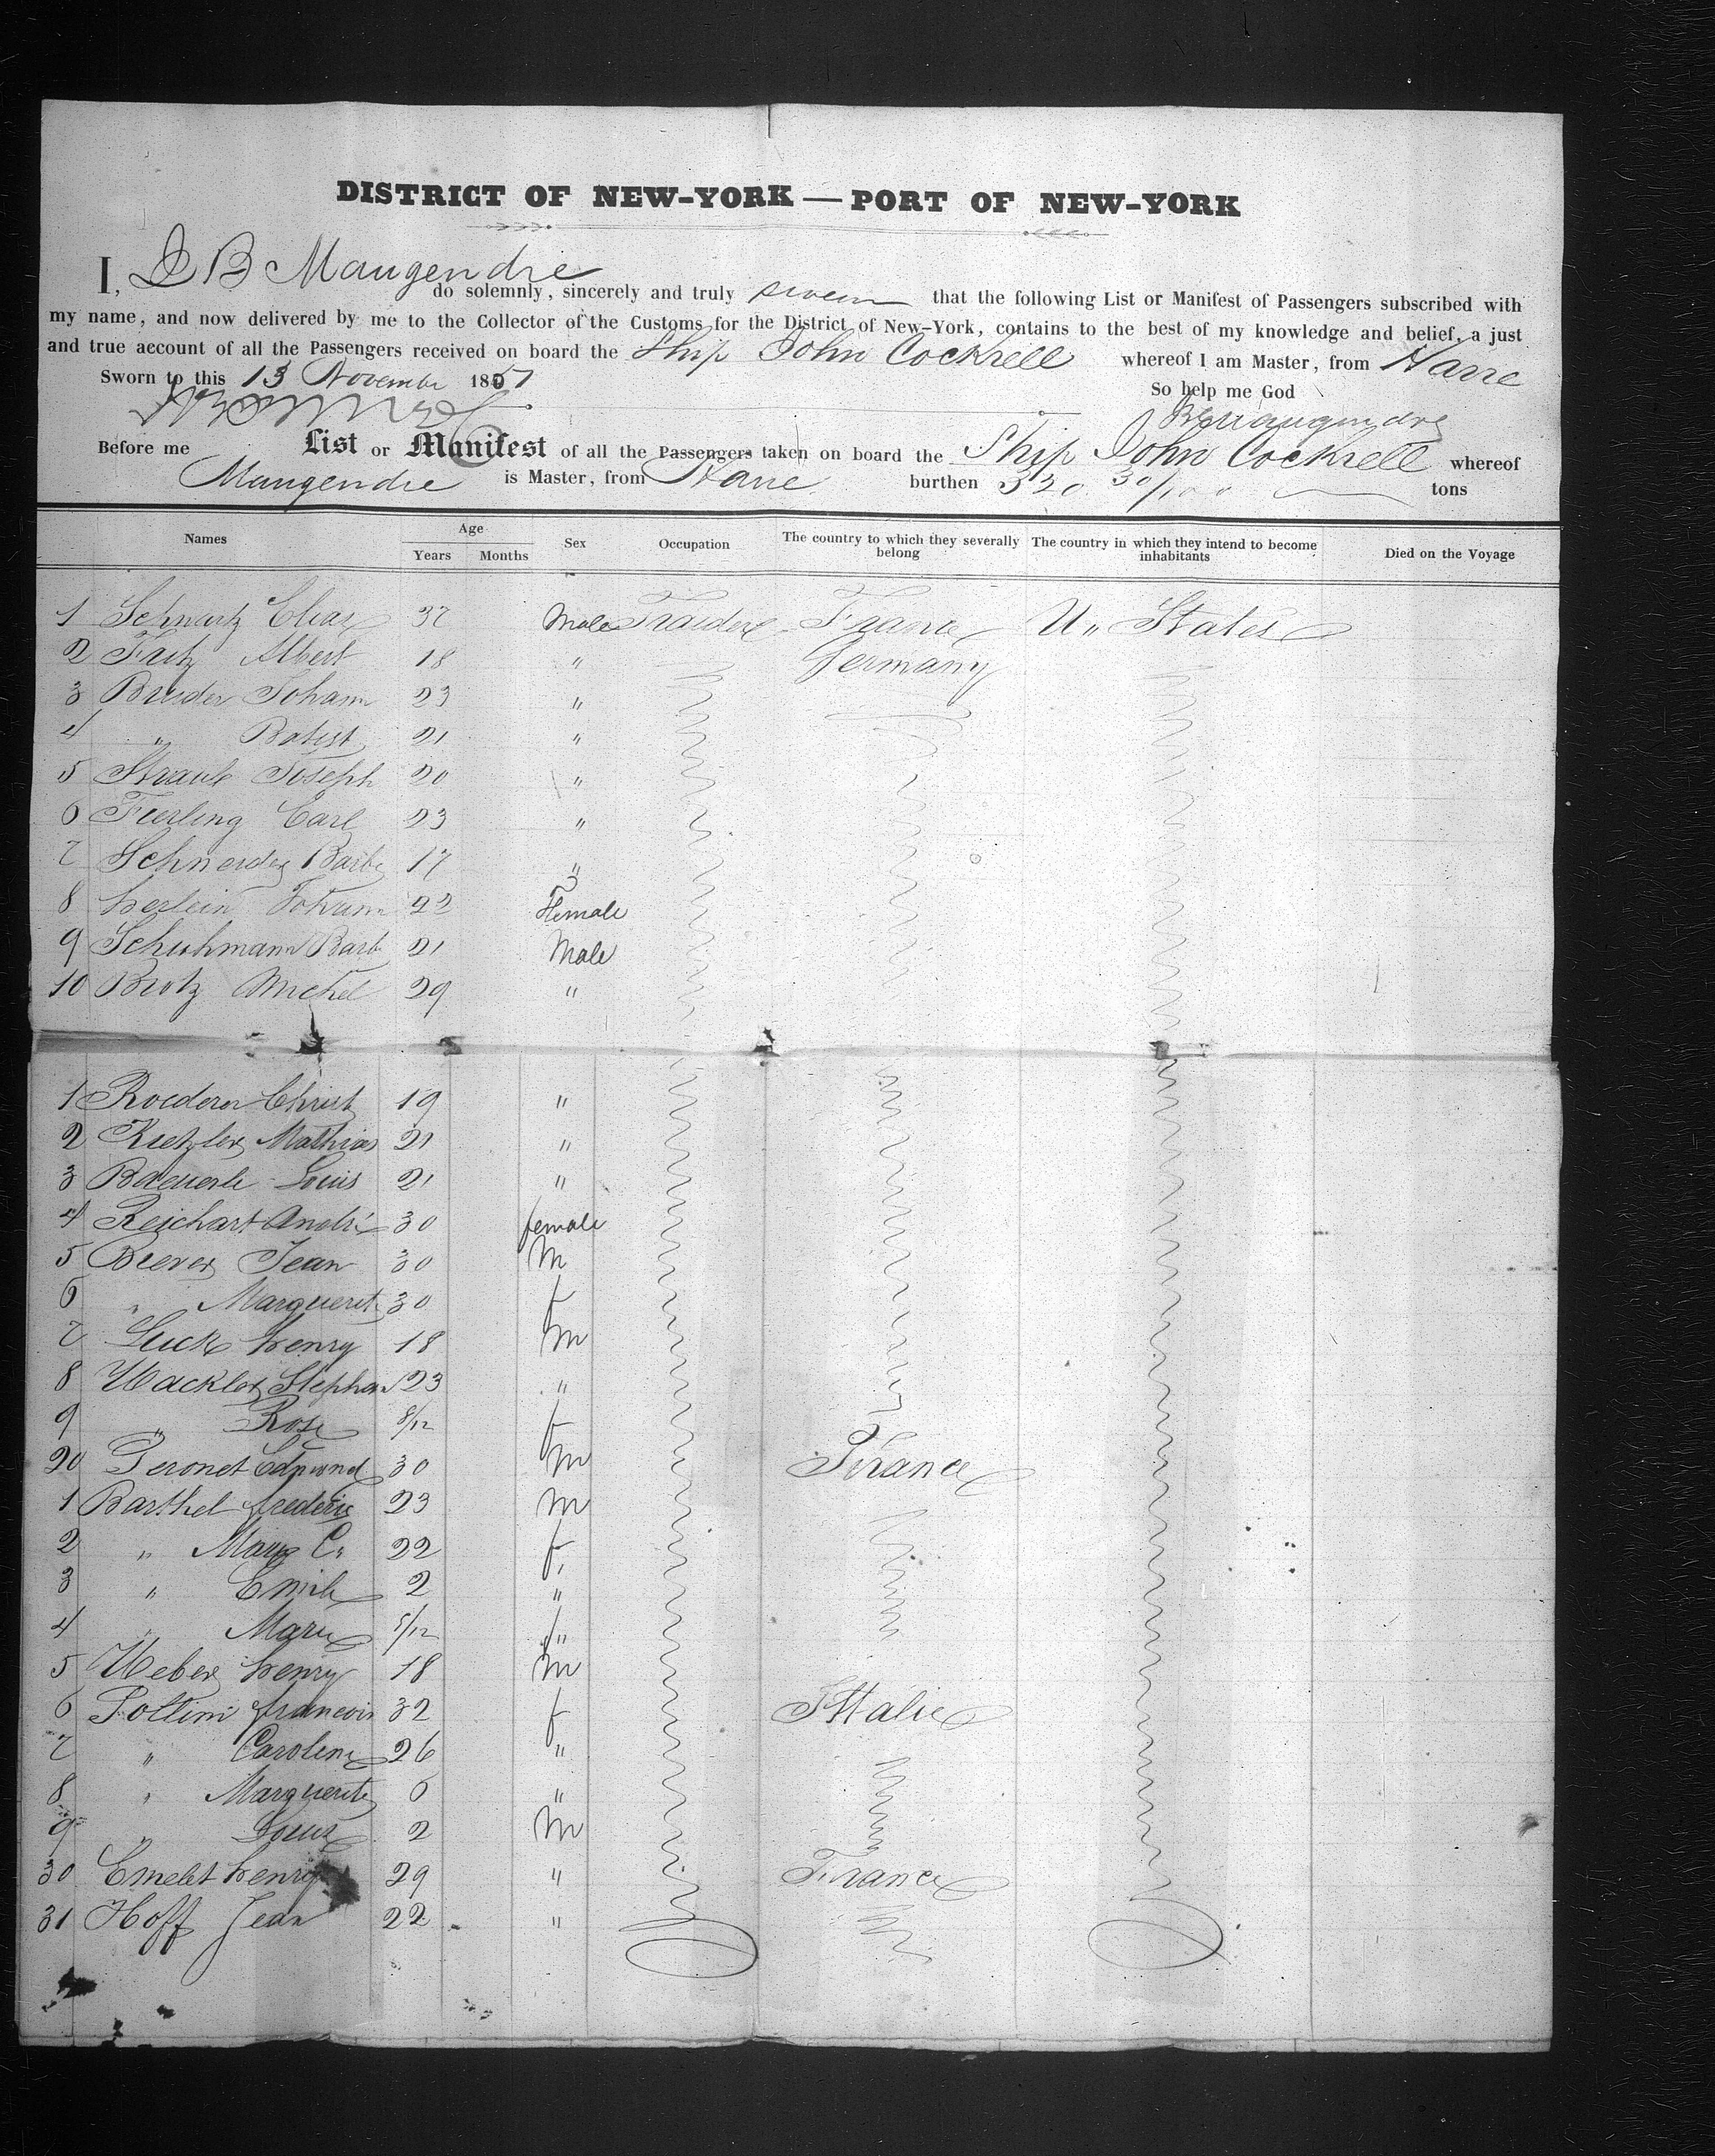 DISTRICT OF NEW-YORK — PORT OF NEW-YORK
I, J B Maugendre
do solemnly, sincerely and truly swear that the following List or Manifest of Passengers subscribed with
my name, and now delivered by me to the Collector of the Customs for the District of New-York, contains to the best of my knowledge and belief, a just
and true account of all the Passengers received on board the Ship John Cockrell whereof I am Master, from Havre
Sworn to this 13 November 1857 So help me God
Maugendre
Before me List or Manifest of all the Passengers taken on board the Ship John Cockrell whereof
Maugendre is Master, from Havre burthen 320 30/100 tons
Names Age Sex Occupation The country to which they severally belong The country in which they intend to become inhabitants Died on the Voyage
Years Months
1 Schwartz Elias 37 Male Traider France U" States
2 Fritz Albert 18 " Germany
3 Bruder Johann 23 "
4 " Batist 21 "
5 Straub Joseph 20 "
6 Fierling Carl 23 "
7 Schneider Barbe 17 "
8 herlein Johann 22 Female
9 Schuhmann Barb 21 Male
10 Brotz Michel 29 "
1 Roederer Christ 19 "
2 Kuetzler Mathias 21 "
3 Baeuerle Louis 21 "
4 Reichart André 30 female
5 Biever Jean 30 M
6 " Marguerit 30 f
7 Luck henry 18 M
8 Wackler Stephan 23 "
9 " Rose 8/12 f
20 Peronet Edmond 30 M France
1 Barthel frederic 23 M
2 " Mary C. 22 f
3 " Emile 2 "
4 " Marie 5/12 f "
5 Weber henry 18 M
6 Pollini francois 32 f Ittalie
7 " Caroline 26 "
8 " Marguerite 6 "
9 " Louis 2 M
30 Emelet henry 29 " France
31 Hoff Jean 22 "